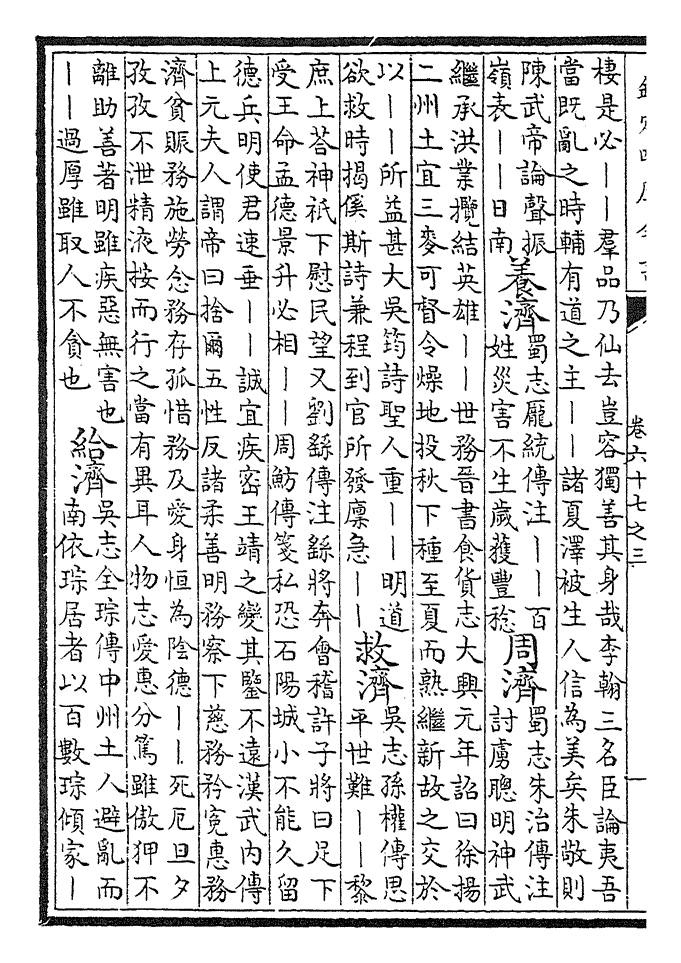 欽定四庫全書
卷六十七之三
一
棲是必——羣品乃仙去豈容獨善其身哉李翰三名臣論夷吾
當既亂之時輔有道之主——諸夏澤被生人信為美矣朱敬則
陳武帝論聲振
嶺表——日南
養濟
蜀志龐統傳注——百
姓災害不生歲獲豐稔
周濟
蜀志朱治傳注
討虜聰明神武
繼承洪業攬結英雄——世務晉書食貨志大興元年詔曰徐揚
二州土宜三麥可督令燥地投秋下種至夏而熟繼新故之交於
以——所益甚大吳筠詩聖人重——明道
欲救時揭傒斯詩兼程到官所發廩急——
救濟
吳志孫權傳思
平世難——黎
庶上荅神祇下慰民望又劉繇傳注繇將奔會稽許子將曰足下
受王命孟德景升必相——周魴傳箋私恐石陽城小不能久留
德兵明使君速垂——誠宜疾密王靖之變其鑒不遠漢武內傳
上元夫人謂帝曰捨爾五性反諸柔善明務察下慈務矜寃惠務
濟貧賑務施勞念務存孤惜務及愛身恒為陰德——死厄旦夕
孜孜不泄精液按而行之當有異耳人物志愛惠分篤雖傲狎不
離助善著明雖疾惡無害也
——過厚雖取人不貪也
給濟
吳志全琮傳中州士人避亂而
南依琮居者以百數琮傾家—